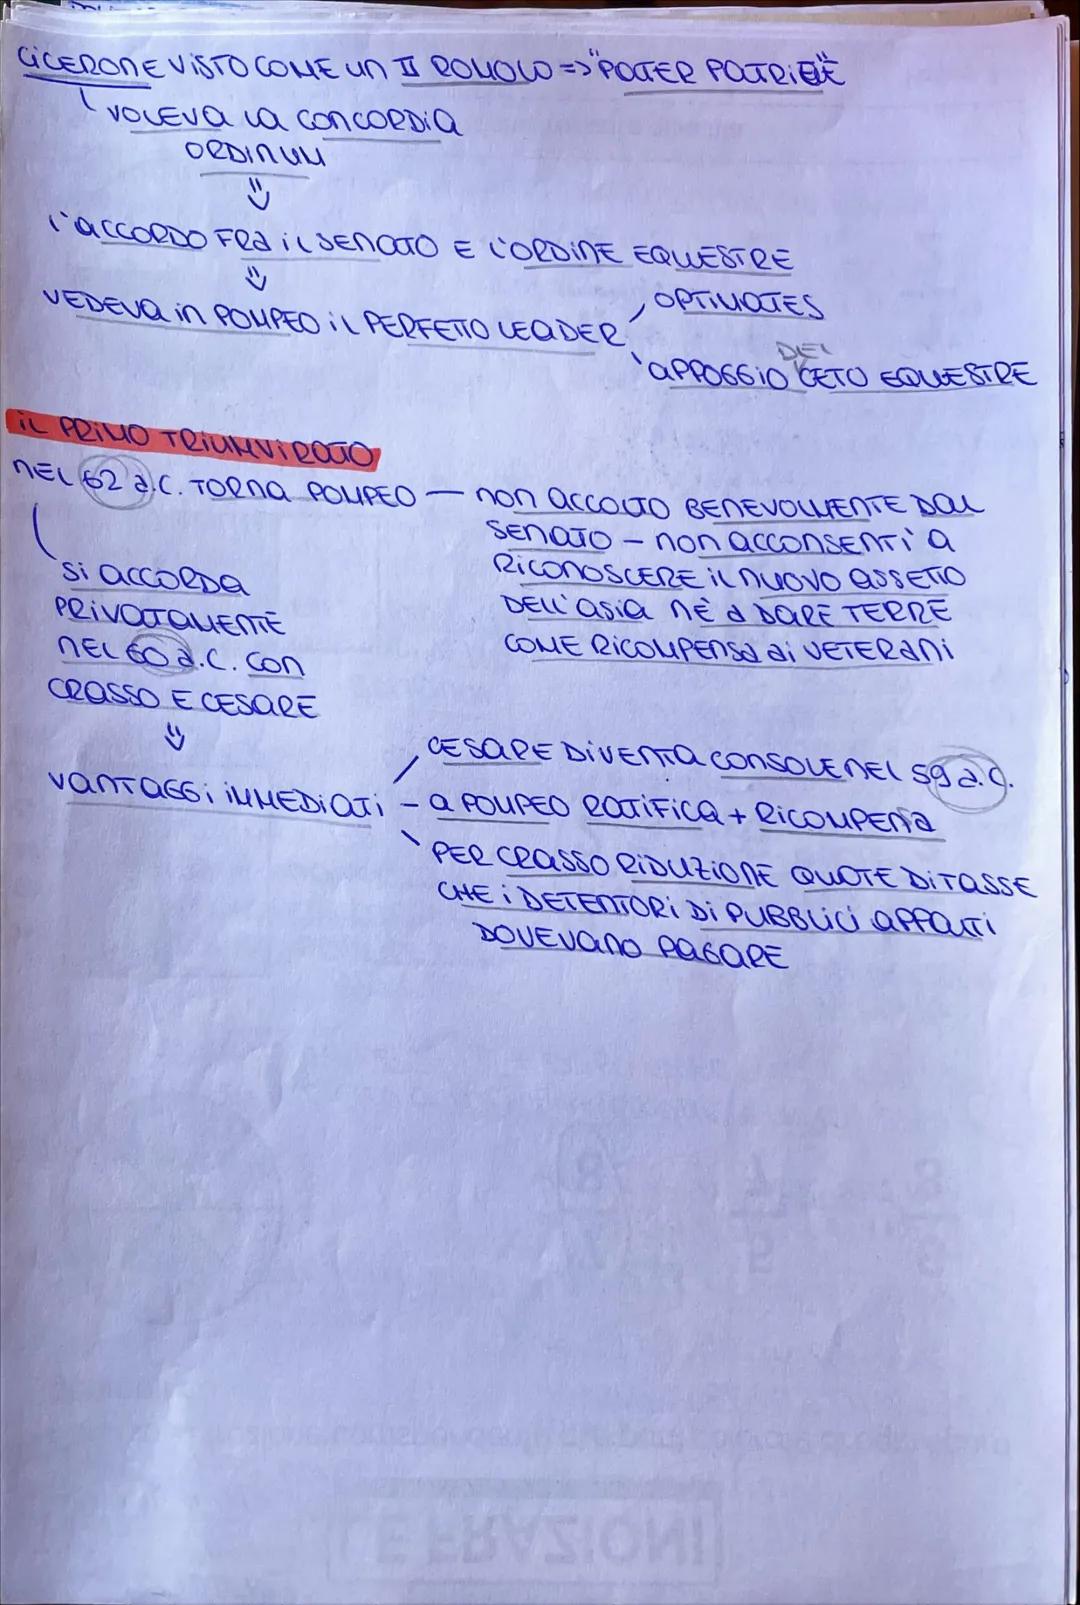 CICERONE VISTO COME UN II ROMOLO => "PATER PATRIAE"
VOLEVA LA CONCORDIA
ORDINUM
L'ACCORDO FRA IL SENATO E L'ORDINE EQUESTRE
VEDEVA IN POMPEO IL PERFETTO LEADER
OPTIMATES
DEL
APPOGGIO CETO EQUESTRE
IL PRIMO TRIUMVIRATO
NEL 62 a.C. TORNA POMPEO — NON ACCOLTO BENEVOLMENTE DAL
SENATO - NON ACCONSENTÌ A
RICONOSCERE IL NUOVO ASSETTO
DELL'ASIA NÈ A DARE TERRE
COME RICOMPENSA AI VETERANI
SI ACCORDA
PRIVATAMENTE
NEL 60 a.C. CON
CRASSO E CESARE
VANTAGGI IMMEDIATI
CESARE DIVENTA CONSOLE NEL 59 a.C.
- A POMPEO RATIFICA + RICOMPENSA
PER CRASSO RIDUZIONE QUOTE DI TASSE
CHE I DETENTORI DI PUBBLICI APPALTI
DOVEVANO PAGARE
LE FRAZIONI